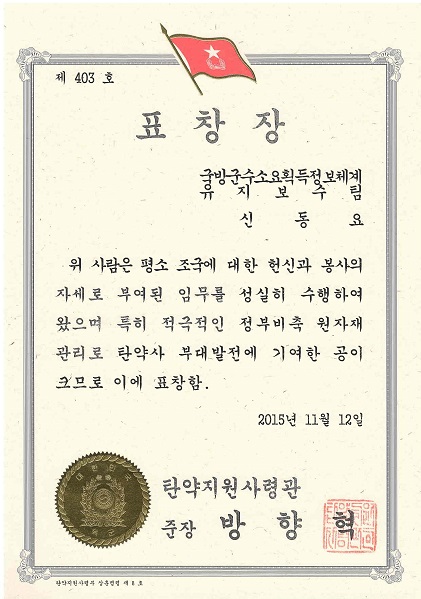 제 403 호
표 창 장
국방군수소요획득정보체계
유 지 보 수 팀
신 동 요
위 사람은 평소 조국에 대한 헌신과 봉사의
자세로 부여된 임무를 성실히 수행하여
왔으며 특히 적극적인 정부비축 원자재
관리로 탄약사 부대발전에 기여한 공이
크므로 이에 표창함.
2015년 11월 12일
대한민국
육군
탄약지원사령관
준장 방 향 혁